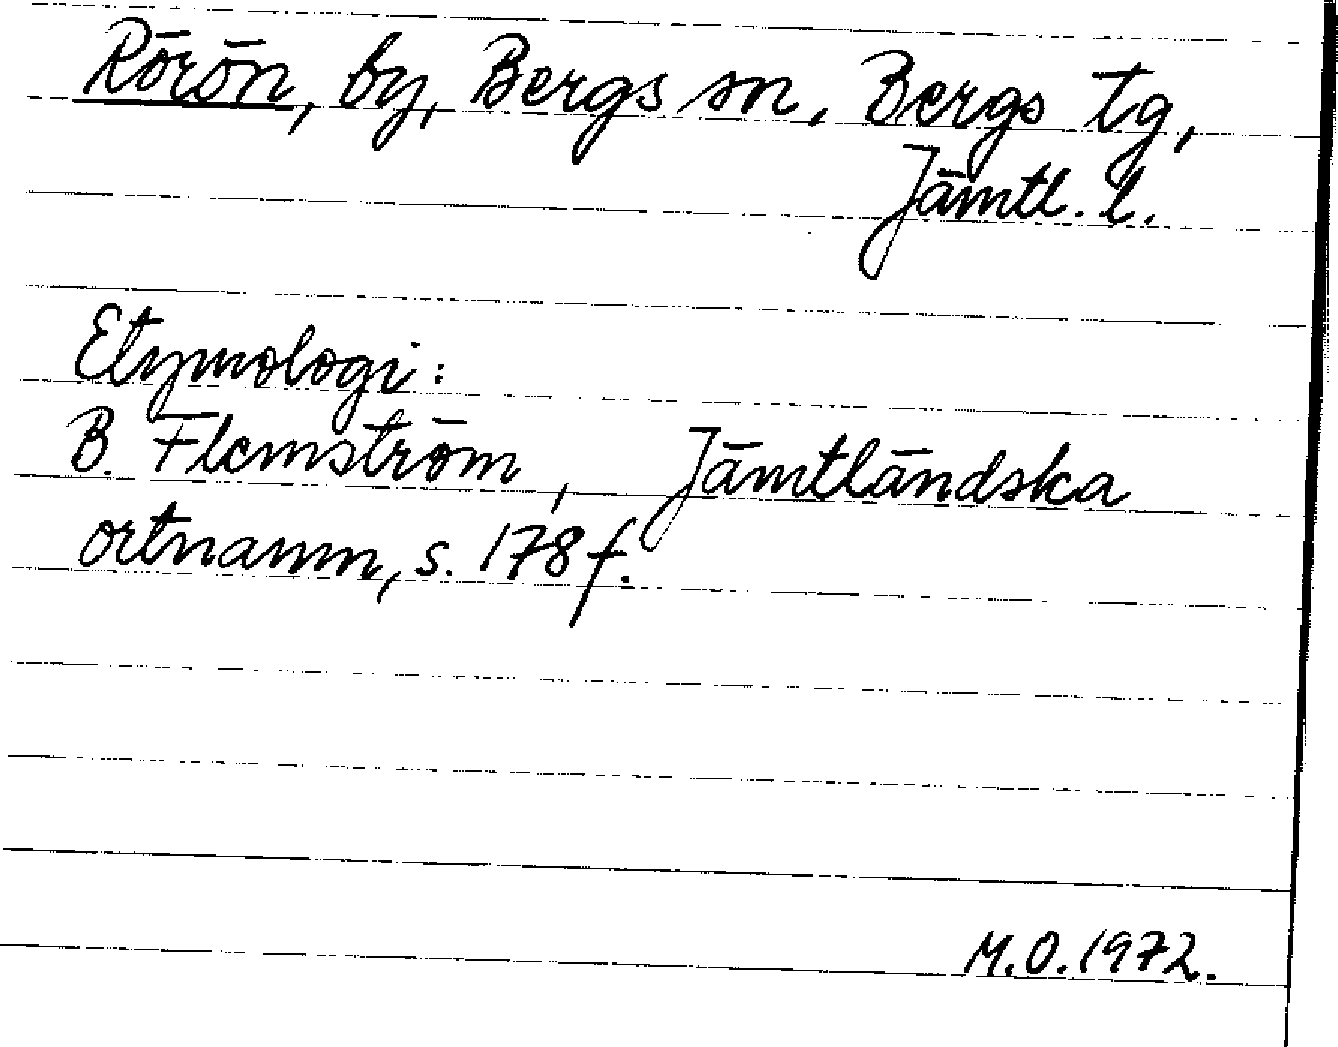 Rörön, by, Bergs sn, Bergs tg,
Jämtl. l.
Etymologi:
B. Flemström, Jämtländska
ortnamn, s. 178 f.
M.O. 1972.